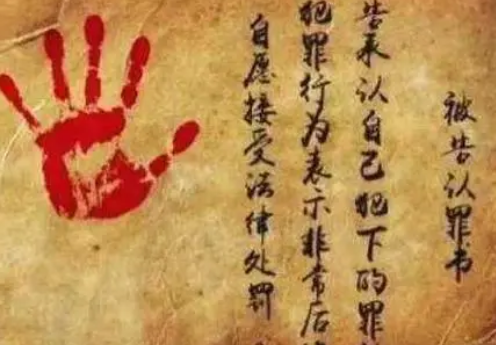 被告认罪书
告承认自己犯下的罪
犯罪行为表示非常后
自愿接受法律处罚